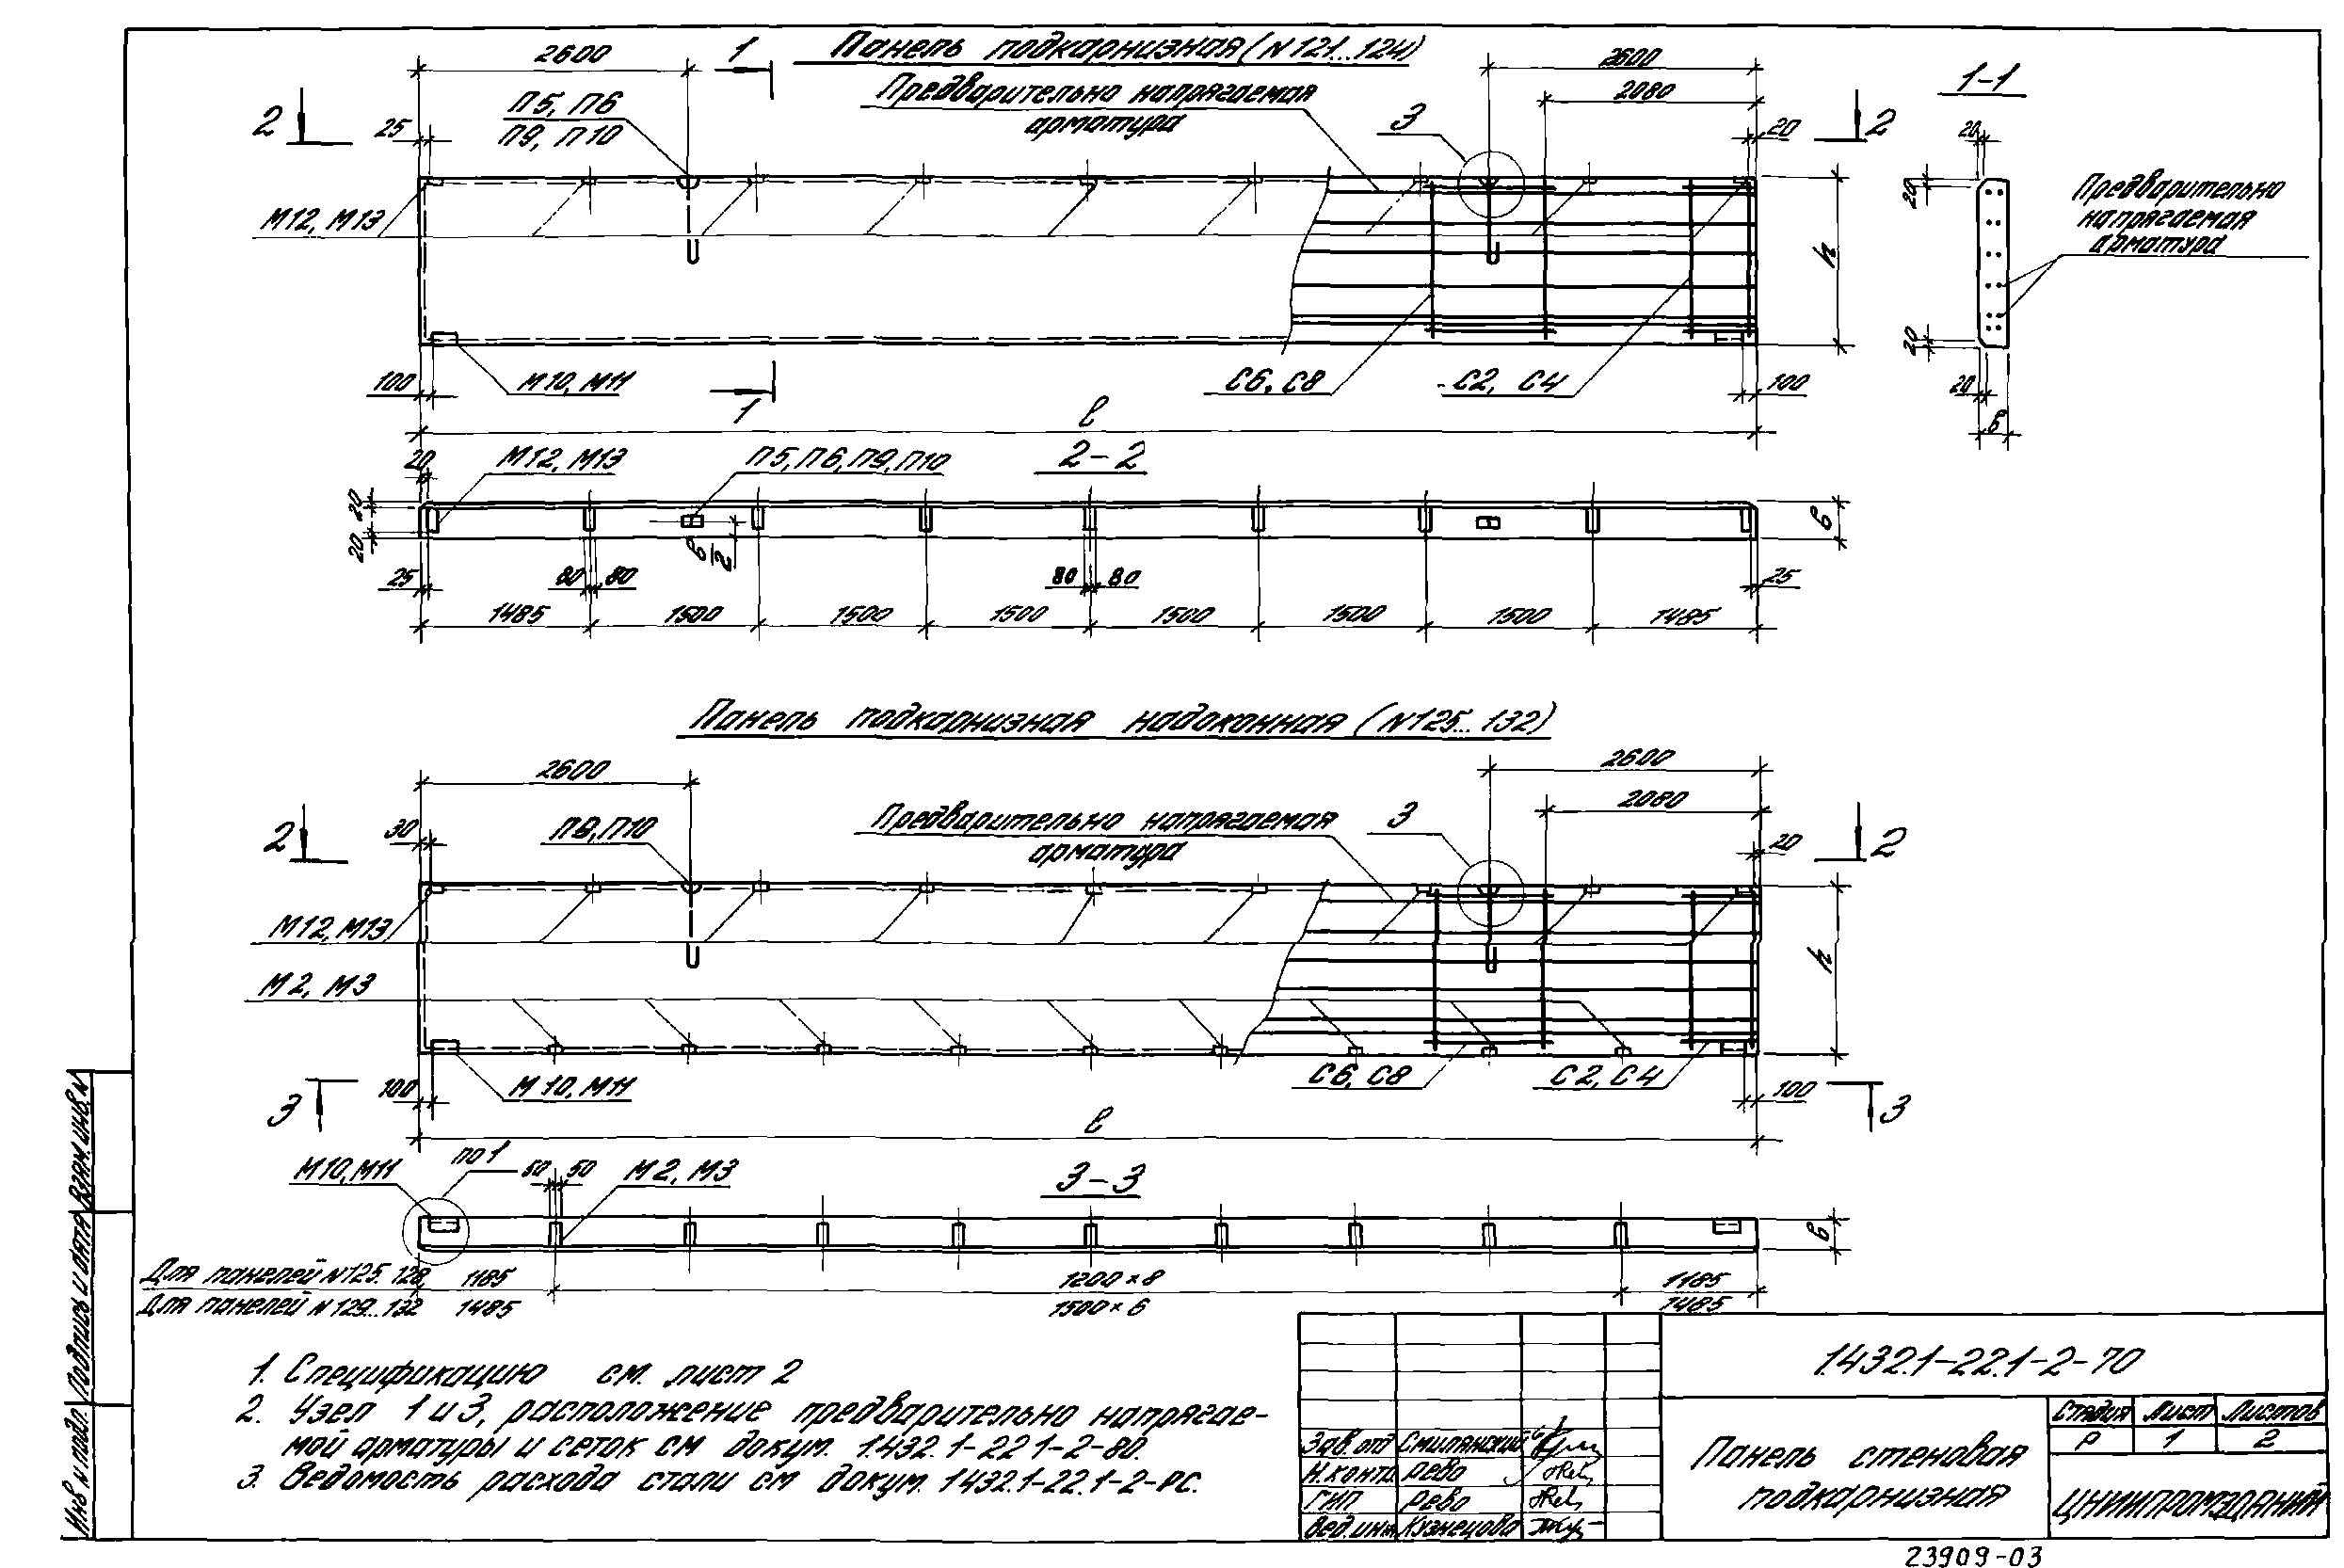 Панель подкарнизная (N121...124)
2600
1
2600
2080
1-1
Предварительно напрягаемая
арматура
П5, П6
П9, П10
3
2
25
20
2
20
20
Предварительно
напрягаемая
арматура
М12, М13
h
20
20
в
100
М10, М11
1
С6, С8
С2, С4
100
ℓ
2-2
20
М12, М13
П5, П6, П9, П10
20
20
в
в/2
25
80
80
80
80
25
1485
1500
1500
1500
1500
1500
1500
1485
Панель подкарнизная надоконная (N125...132)
2600
2600
2080
2
30
П8, П10
Предварительно напрягаемая
арматура
3
20
2
М12, М13
М2, М3
h
3
100
М10, М11
С6, С8
С2, С4
100
3
ℓ
М10, М11
по1
50
50
М2, М3
3-3
в
Для панелей N125...128
1185
1200×8
1185
Для панелей N129...132
1485
1500×6
1485
1. Спецификацию см. лист 2
2. Узел 1 и 3, расположение предварительно напрягае-
мой арматуры и сеток см докум. 1.432.1-22 1-2-80.
3. Ведомость расхода стали см докум. 1432.1-22.1-2-РС.
1.432.1-22.1-2-70
Панель стеновая
подкарнизная
Стадия Лист Листов
Р 1 2
ЦНИИПРОМЗДАНИЙ
Зав. отд Смилянский
Н.контр. Рево
ГИП Рево
Вед.инж. Кузнецова
Инв N подл. Подпись и дата Взам.инв.N
23909-03